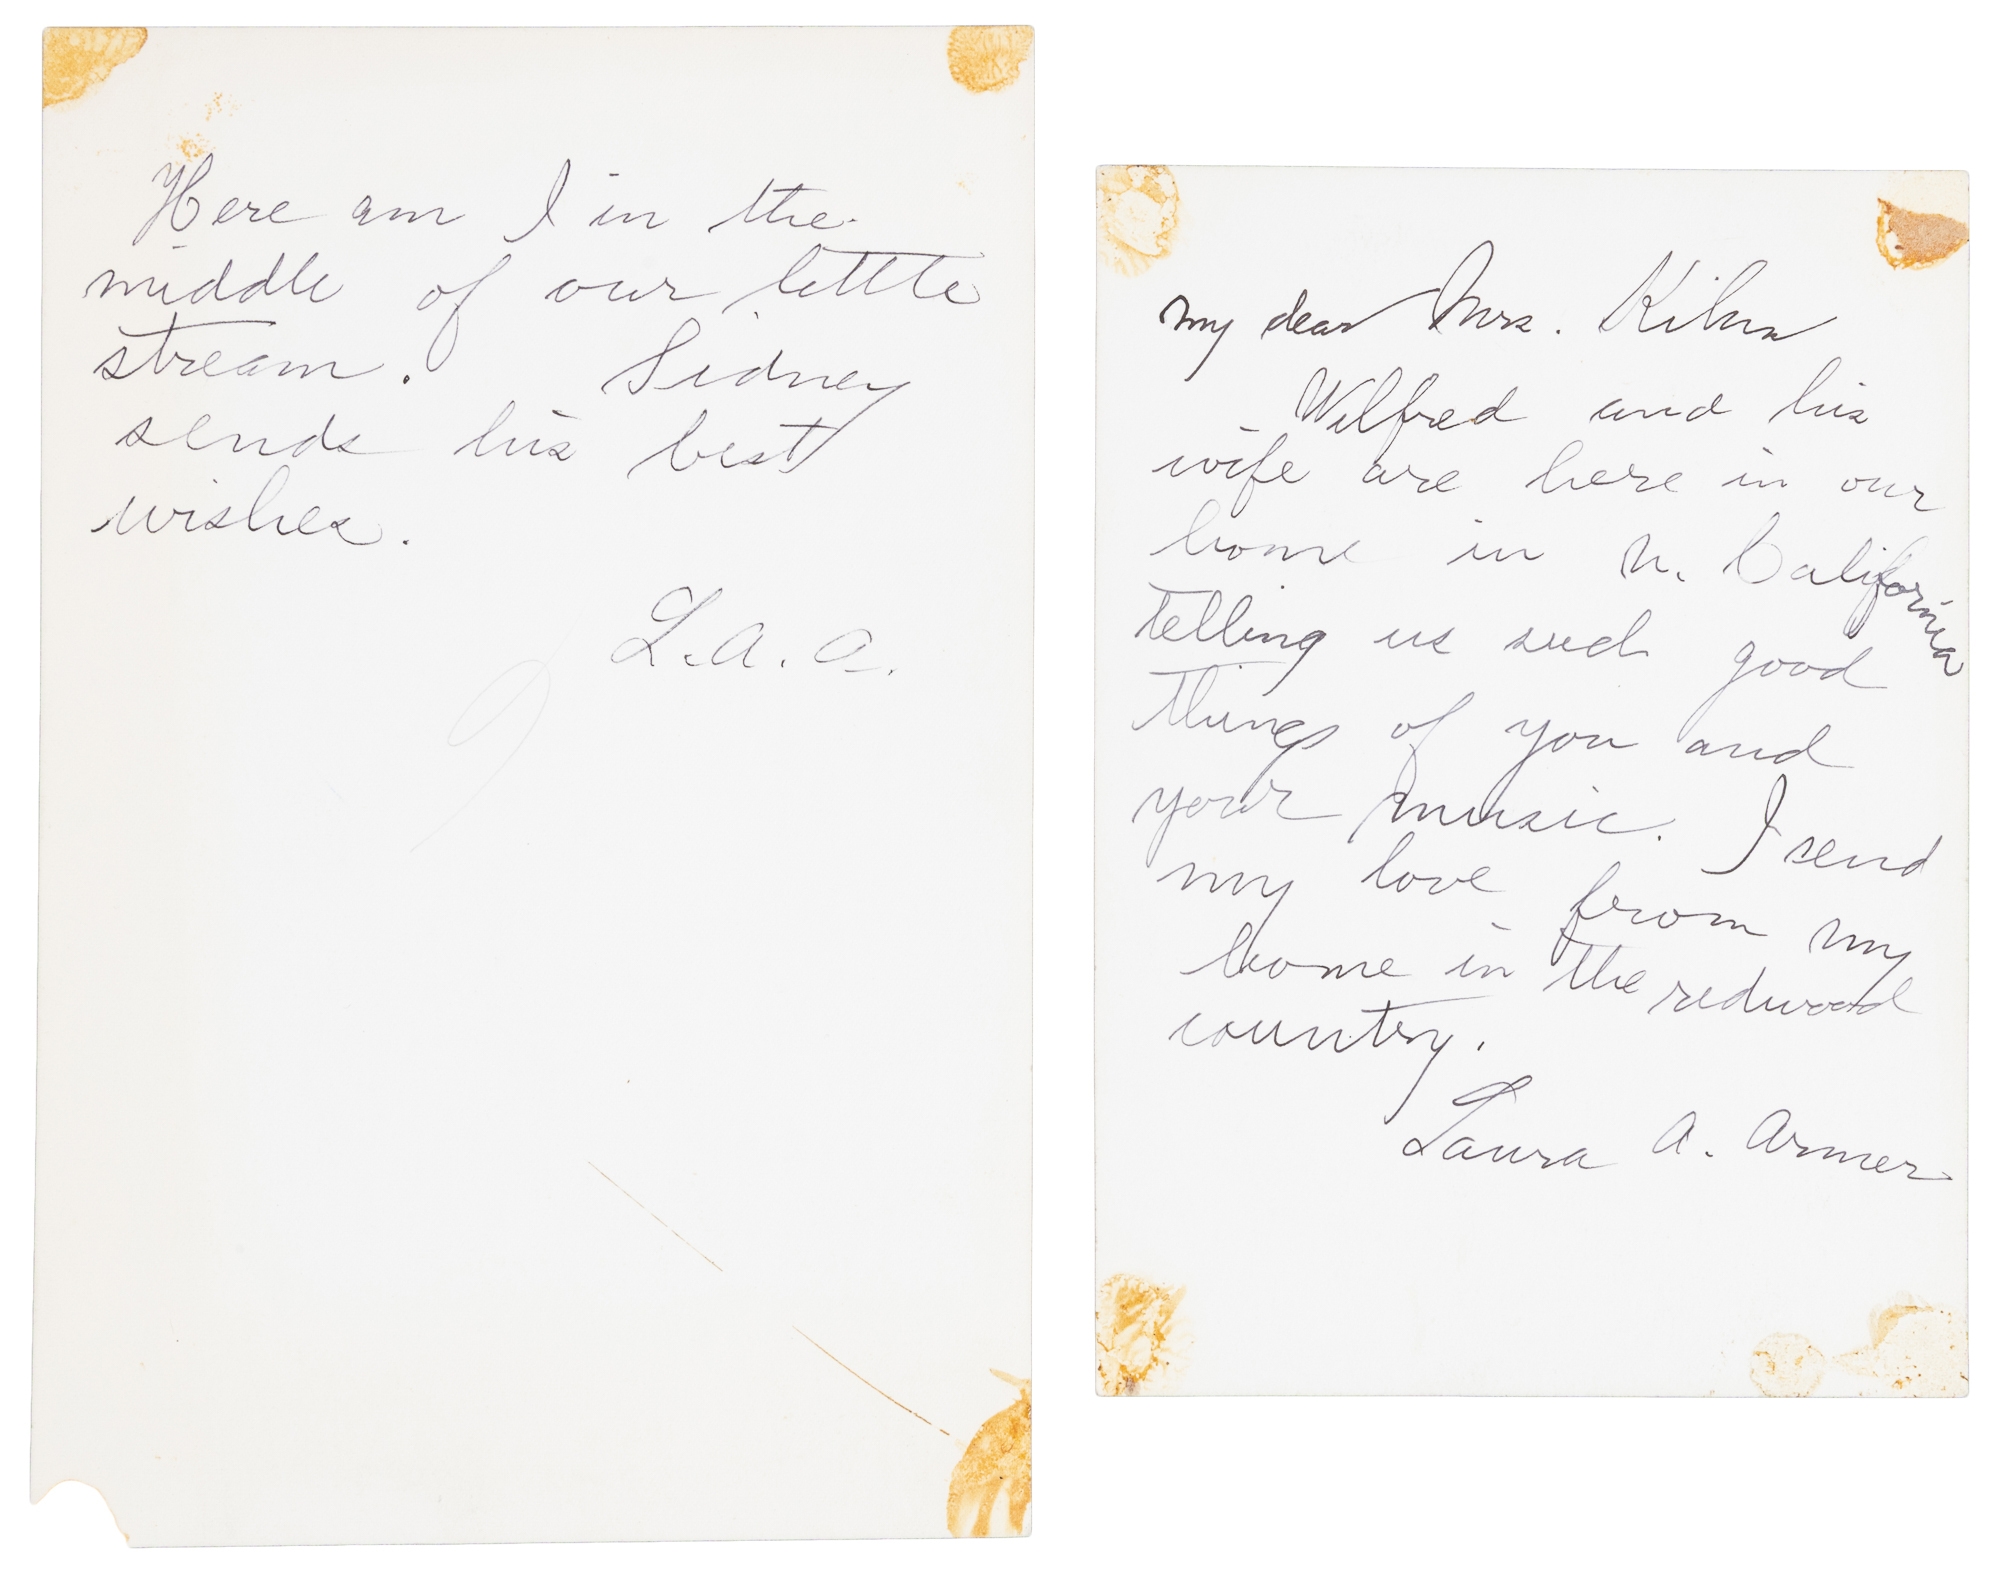 Here am I in the
middle of our little
stream. Sidney
sends his best
wishes.
L. A. A.
My dear Mrs.
Wilfred and his
wife are here in our
home in N. California
telling us such good
things of you and
your music. I send
my love from my
home in the redwood
country.
Laura A. Armer